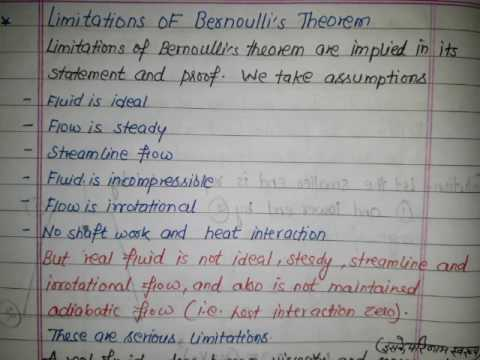 * Limitations of Bernoulli's Theorem
Limitations of Bernoulli's theorem are implied in its
statement and proof. We take assumptions
- Fluid is ideal
- Flow is steady
- Streamline flow
- Fluid is incompressible
- Flow is irrotational
- No shaft work and heat interaction
But real fluid is not ideal, steady, streamline and
irrotational flow, and also is not maintained
adiabatic flow (i.e. host interaction zero).
These are serious limitations.
(इसके परिणाम स्वरूप
A real fluid